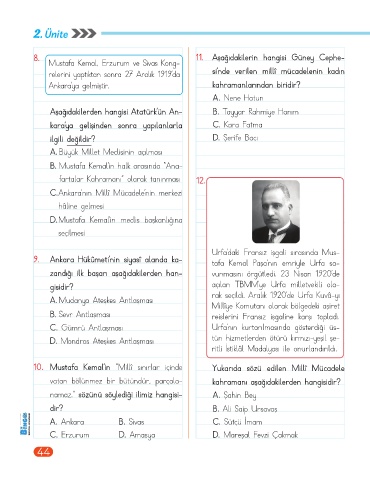 2. Ünite
8.
Mustafa Kemal, Erzurum ve Sivas Kong-
relerini yaptıktan sonra 27 Aralık 1919'da
Ankara'ya gelmiştir.
Aşağıdakilerden hangisi Atatürk'ün An-
kara'ya gelişinden sonra yapılanlarla
ilgili değildir?
A. Büyük Millet Meclisinin açılması
B. Mustafa Kemal'in halk arasında "Ana-
fartalar Kahramanı" olarak tanınması
C. Ankara'nın Millî Mücadele'nin merkezi
hâline gelmesi
D. Mustafa Kemal'in meclis başkanlığına
seçilmesi
9. Ankara Hükûmeti'nin siyasî alanda ka-
zandığı ilk başarı aşağıdakilerden han-
gisidir?
A. Mudanya Ateşkes Antlaşması
B. Sevr Antlaşması
C. Gümrü Antlaşması
D. Mondros Ateşkes Antlaşması
10. Mustafa Kemal'in "Millî sınırlar içinde
vatan bölünmez bir bütündür, parçala-
namaz." sözünü söylediği ilimiz hangisi-
dir?
A. Ankara B. Sivas
C. Erzurum D. Amasya
11. Aşağıdakilerin hangisi Güney Cephe-
si'nde verilen millî mücadelenin kadın
kahramanlarından biridir?
A. Nene Hatun
B. Tayyar Rahmiye Hanım
C. Kara Fatma
D. Şerife Bacı
12.
Urfa'daki Fransız işgali sırasında Mus-
tafa Kemal Paşa'nın emriyle Urfa sa-
vunmasını örgütledi. 23 Nisan 1920'de
açılan TBMM'ye Urfa milletvekili ola-
rak seçildi. Aralık 1920'de Urfa Kuvâ-yı
Milliye Komutanı olarak bölgedeki aşiret
reislerini Fransız işgaline karşı topladı.
Urfa'nın kurtarılmasında gösterdiği üs-
tün hizmetlerden ötürü kırmızı-yeşil şe-
ritli İstiklâl Madalyası ile onurlandırıldı.
Yukarıda sözü edilen Millî Mücadele
kahramanı aşağıdakilerden hangisidir?
A. Şahin Bey
B. Ali Saip Ursavaş
C. Sütçü İmam
D. Mareşal Fevzi Çakmak
44